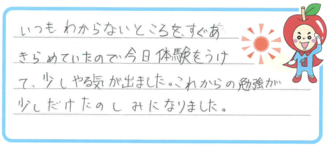 いつもわからないところを、すぐあ
きらめていたので今日体験をうけ
て、少しやる気が出ました。これからの勉強が
少しだけたのしみになりました。